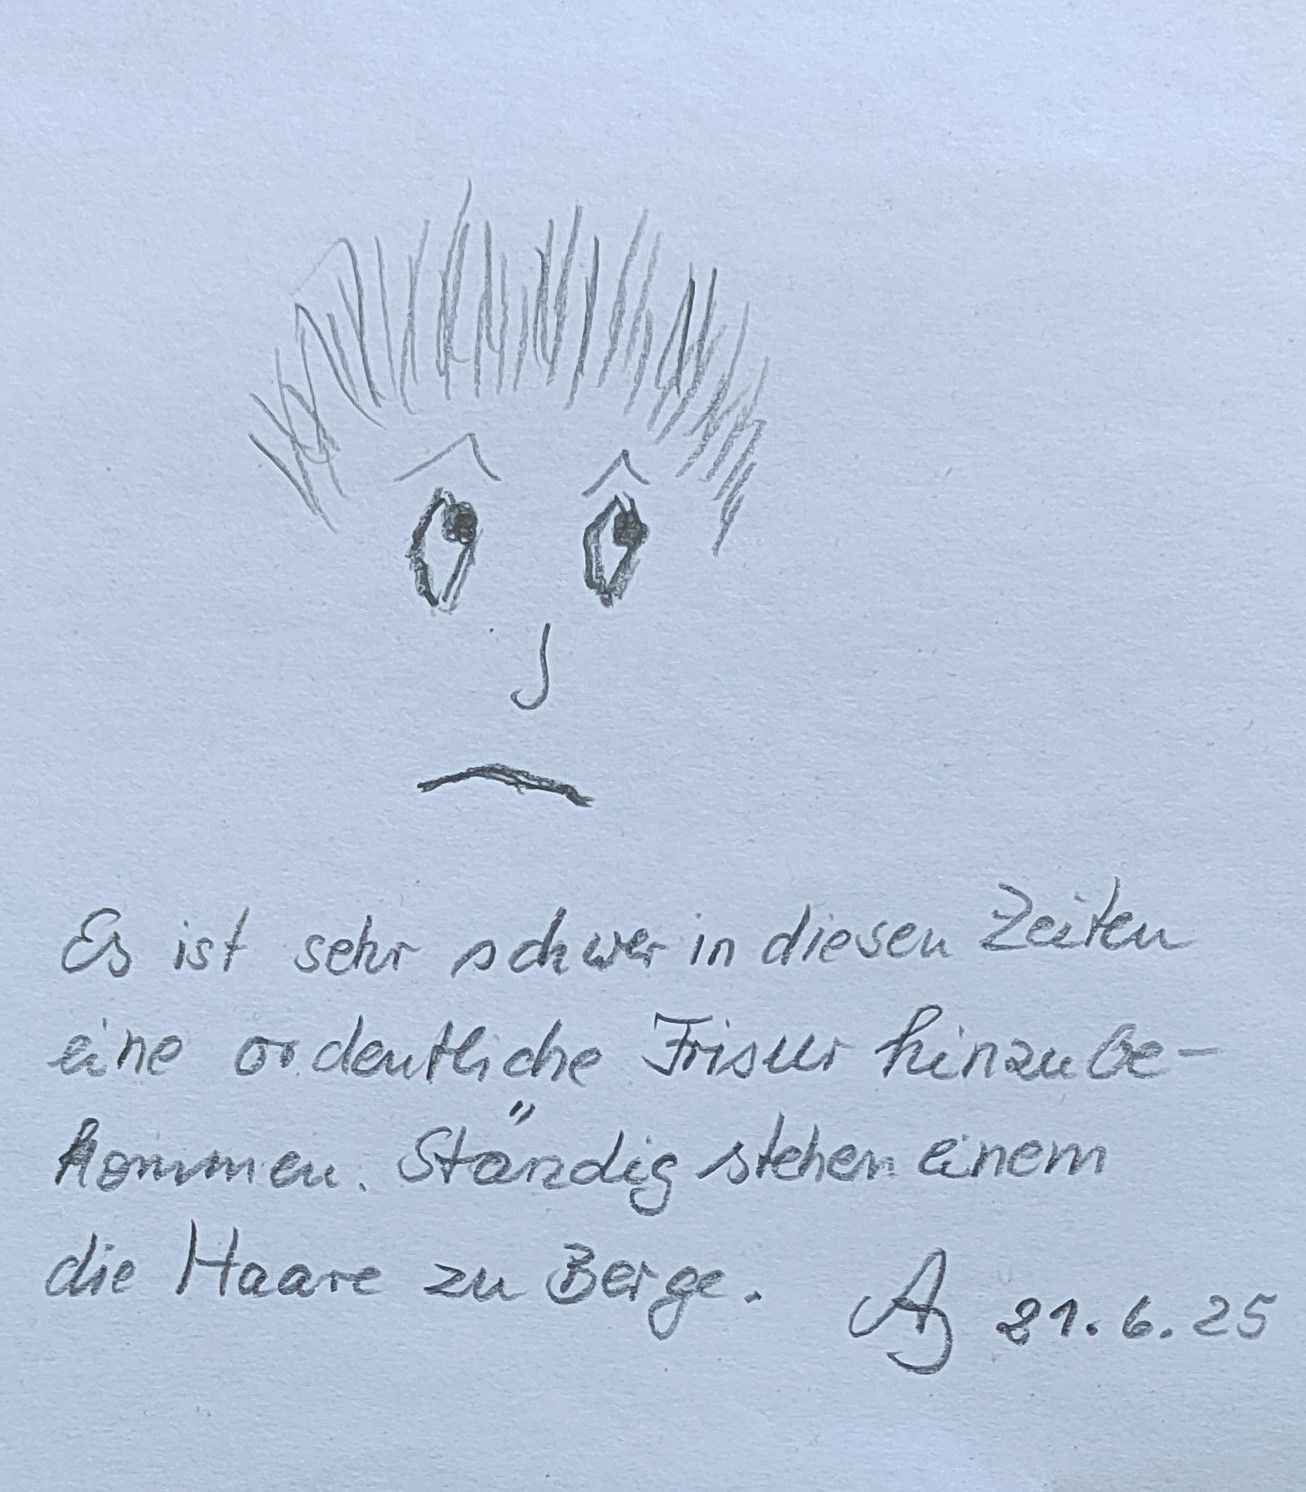 Es ist sehr schwer in diesen Zeiten
eine ordentliche Frisur hinzube-
kommen. Ständig stehen einem
die Haare zu Berge.
21.6.25